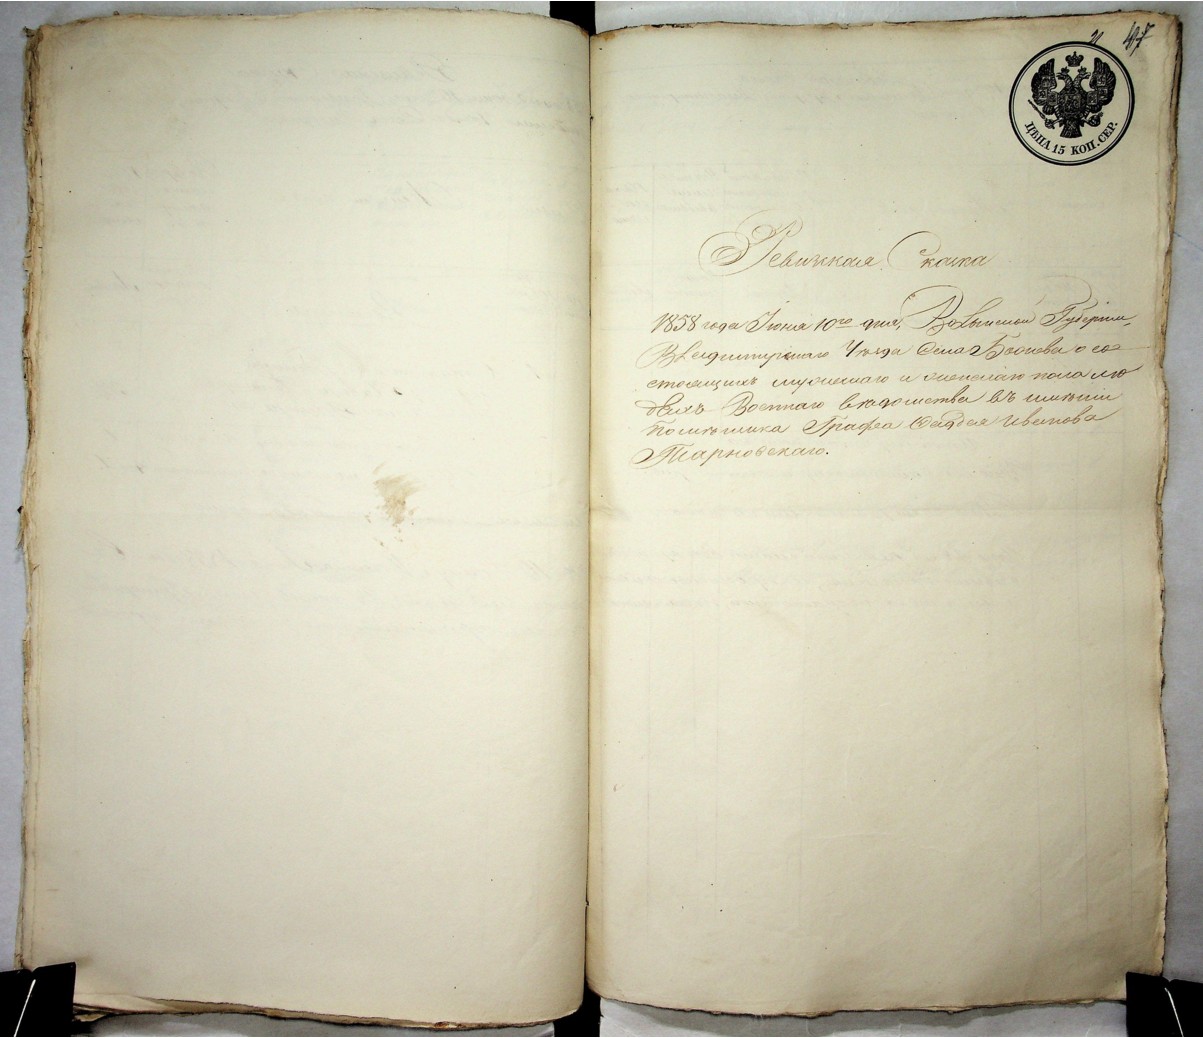 47
ЦѢНА 15 КОП. СЕР.
Ревизская Сказка
1858 года Июня 10го дня, Волынской Губерніи,
Владимирскаго Уѣзда Села о со-
стоящихъ мужескаго и женскаго пола лю
дѣхъ Военнаго вѣдомства въ имѣніи
Помѣщика Графа Иванова
Тарновскаго.